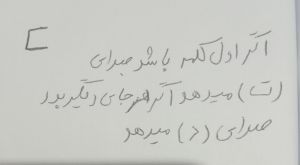 اگر اول کلمه باشد صدای
(ت) میدهد اگر هر جای دیگر بود
صدای (د) میدهد